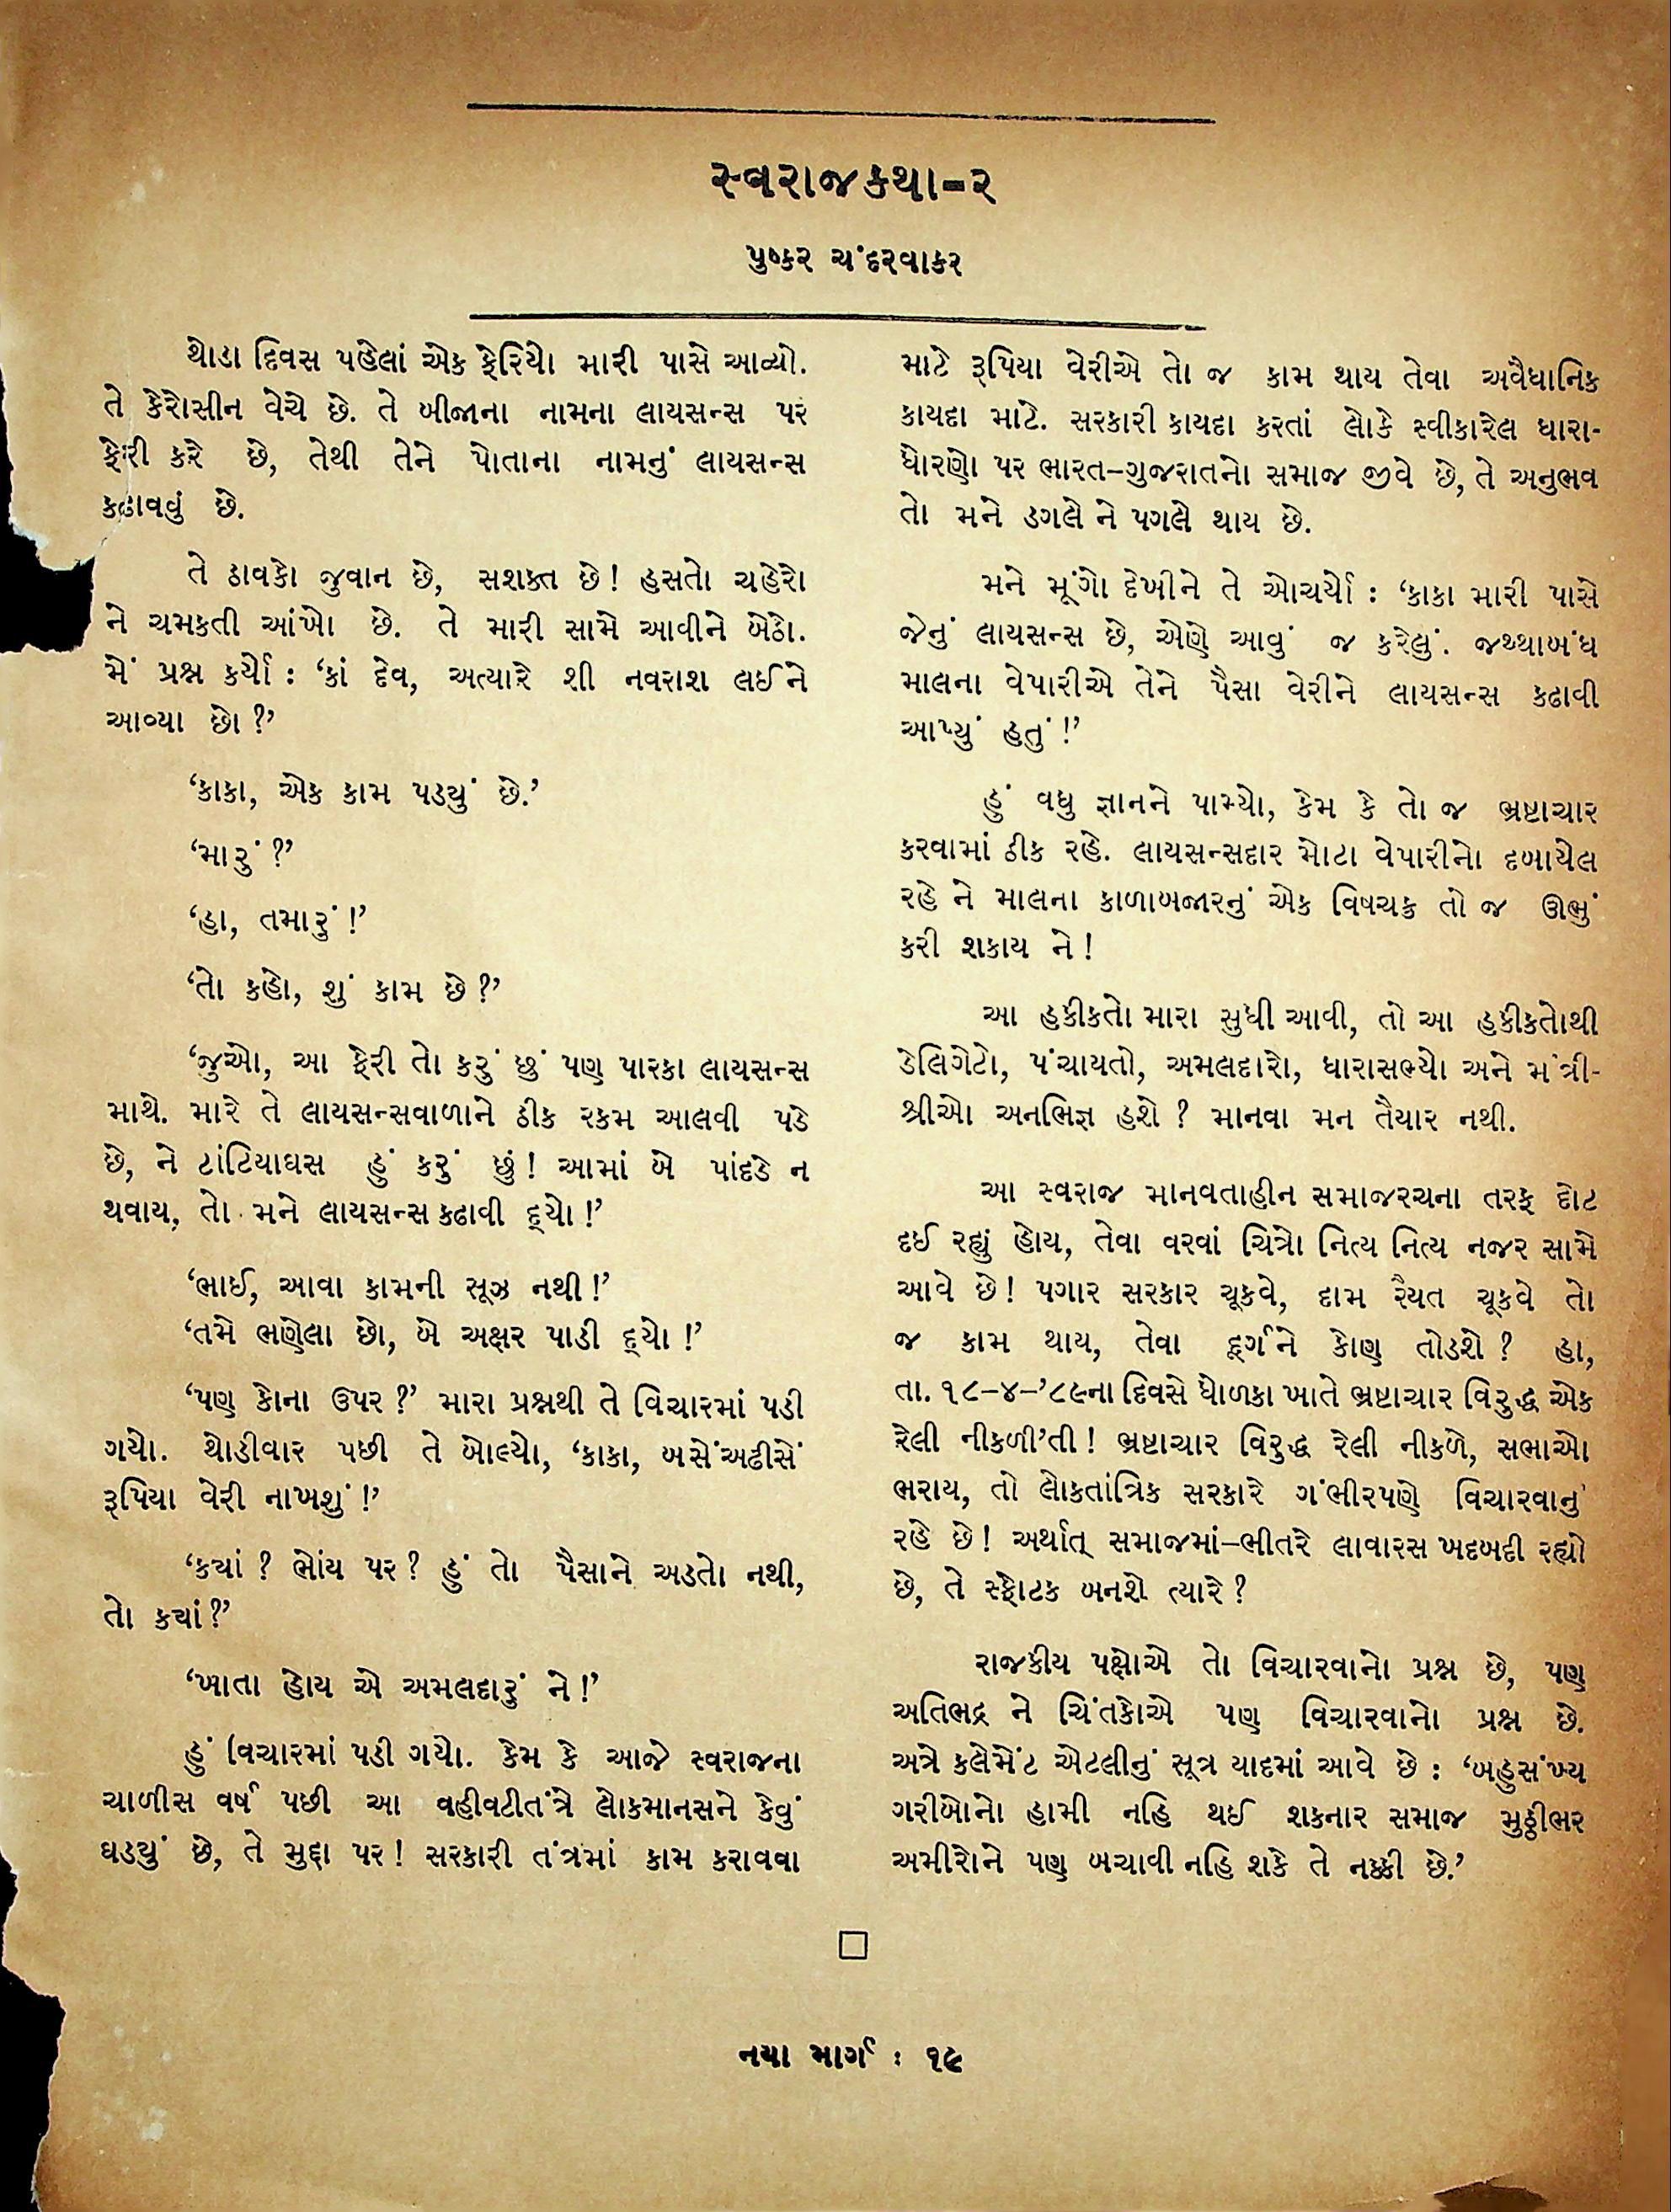 સ્વરાજકથા-૨
પુષ્કર ચંદરવાકર
થોડા દિવસ પહેલાં એક ફેરિયો મારી પાસે આવ્યો.
તે કેરોસીન વેચે છે. તે બીજાના નામના લાયસન્સ પર
ફેરી કરે છે, તેથી તેને પોતાના નામનું લાયસન્સ
કઢાવવું છે.
તે ઠાવકો જુવાન છે, સશક્ત છે! હસતો ચહેરો
ને ચમકતી આંખો છે. તે મારી સામે આવીને બેઠો.
મેં પ્રશ્ન કર્યો : ‘કાં દેવ, અત્યારે શી નવરાશ લઈને
આવ્યા છો?’
‘કાકા, એક કામ પડયું છે.’
‘મારું?’
‘હા, તમારું!’
‘તો કહો, શું કામ છે?’
‘જુઓ, આ ફેરી તો કરું છું પણ પારકા લાયસન્સ
માથે. મારે તે લાયસન્સવાળાને ઠીક રકમ આલવી પડે
છે, ને ટાંટિયાઘસ હું કરું છું! આમાં બે પાંદડે ન
થવાય, તો મને લાયસન્સ કઢાવી દ્યો!’
‘ભાઈ, આવા કામની સૂઝ નથી!’
‘તમે ભણેલા છો, બે અક્ષર પાડી દ્યો!’
‘પણ કોના ઉપર?’ મારા પ્રશ્નથી તે વિચારમાં પડી
ગયો. થોડીવાર પછી તે બોલ્યો, ‘કાકા, બસેંઅઢીસેં
રૂપિયા વેરી નાખશું!’
‘કયાં? ભોંય પર? હું તો પૈસાને અડતો નથી,
તો કયાં?’
‘ખાતા હોય એ અમલદારું ને!’
હું વિચારમાં પડી ગયો. કેમ કે આજે સ્વરાજના
ચાળીસ વર્ષ પછી આ વહીવટીતંત્રે લોકમાનસને કેવું
ઘડયું છે, તે મુદ્દા પર! સરકારી તંત્રમાં કામ કરાવવા
માટે રૂપિયા વેરીએ તો જ કામ થાય તેવા અવૈધાનિક
કાયદા માટે. સરકારી કાયદા કરતાં લોકે સ્વીકારેલ ધારા-
ધોરણો પર ભારત–ગુજરાતનો સમાજ જીવે છે, તે અનુભવ
તો મને ડગલે ને પગલે થાય છે.
મને મૂંગો દેખીને તે ઓચર્યો : ‘કાકા મારી પાસે
જેનું લાયસન્સ છે, એણે આવું જ કરેલું. જથ્થાબંધ
માલના વેપારીએ તેને પૈસા વેરીને લાયસન્સ કઢાવી
આપ્યું હતું!’
હું વધુ જ્ઞાનને પામ્યો, કેમ કે તો જ ભ્રષ્ટાચાર
કરવામાં ઠીક રહે. લાયસન્સદાર મોટા વેપારીનો દબાયેલ
રહે ને માલના કાળાબજારનું એક વિષચક્ર તો જ ઊભું
કરી શકાય ને!
આ હકીકતો મારા સુધી આવી, તો આ હકીકતોથી
ડેલિગેટો, પંચાયતો, અમલદારો, ધારાસભ્યો અને મંત્રી-
શ્રીઓ અનભિજ્ઞ હશે? માનવા મન તૈયાર નથી.
આ સ્વરાજ માનવતાહીન સમાજરચના તરફ દોટ
દઈ રહ્યું હોય, તેવા વરવાં ચિત્રો નિત્ય નિત્ય નજર સામે
આવે છે! પગાર સરકાર ચૂકવે, દામ રૈયત ચૂકવે તો
જ કામ થાય, તેવા દૂર્ગને કોણ તોડશે? હા,
તા. ૧૮–૪–’૮૯ના દિવસે ધોળકા ખાતે ભ્રષ્ટાચાર વિરુદ્ધ એક
રેલી નીકળી’તી! ભ્રષ્ટાચાર વિરુદ્ધ રેલી નીકળે, સભાઓ
ભરાય, તો લોકતાંત્રિક સરકારે ગંભીરપણે વિચારવાનું
રહે છે! અર્થાત્ સમાજમાં–ભીતરે લાવારસ ખદબદી રહ્યો
છે, તે સ્ફોટક બનશે ત્યારે?
રાજકીય પક્ષોએ તો વિચારવાનો પ્રશ્ન છે, પણ
અતિભદ્ર ને ચિંતકોએ પણ વિચારવાનો પ્રશ્ન છે.
અત્રે કલેમેંટ એટલીનું સૂત્ર યાદમાં આવે છે : ‘બહુસંખ્ય
ગરીબોનો હામી નહિ થઈ શકનાર સમાજ મુઠ્ઠીભર
અમીરોને પણ બચાવી નહિ શકે તે નક્કી છે.’
નયા માર્ગ : ૧૯